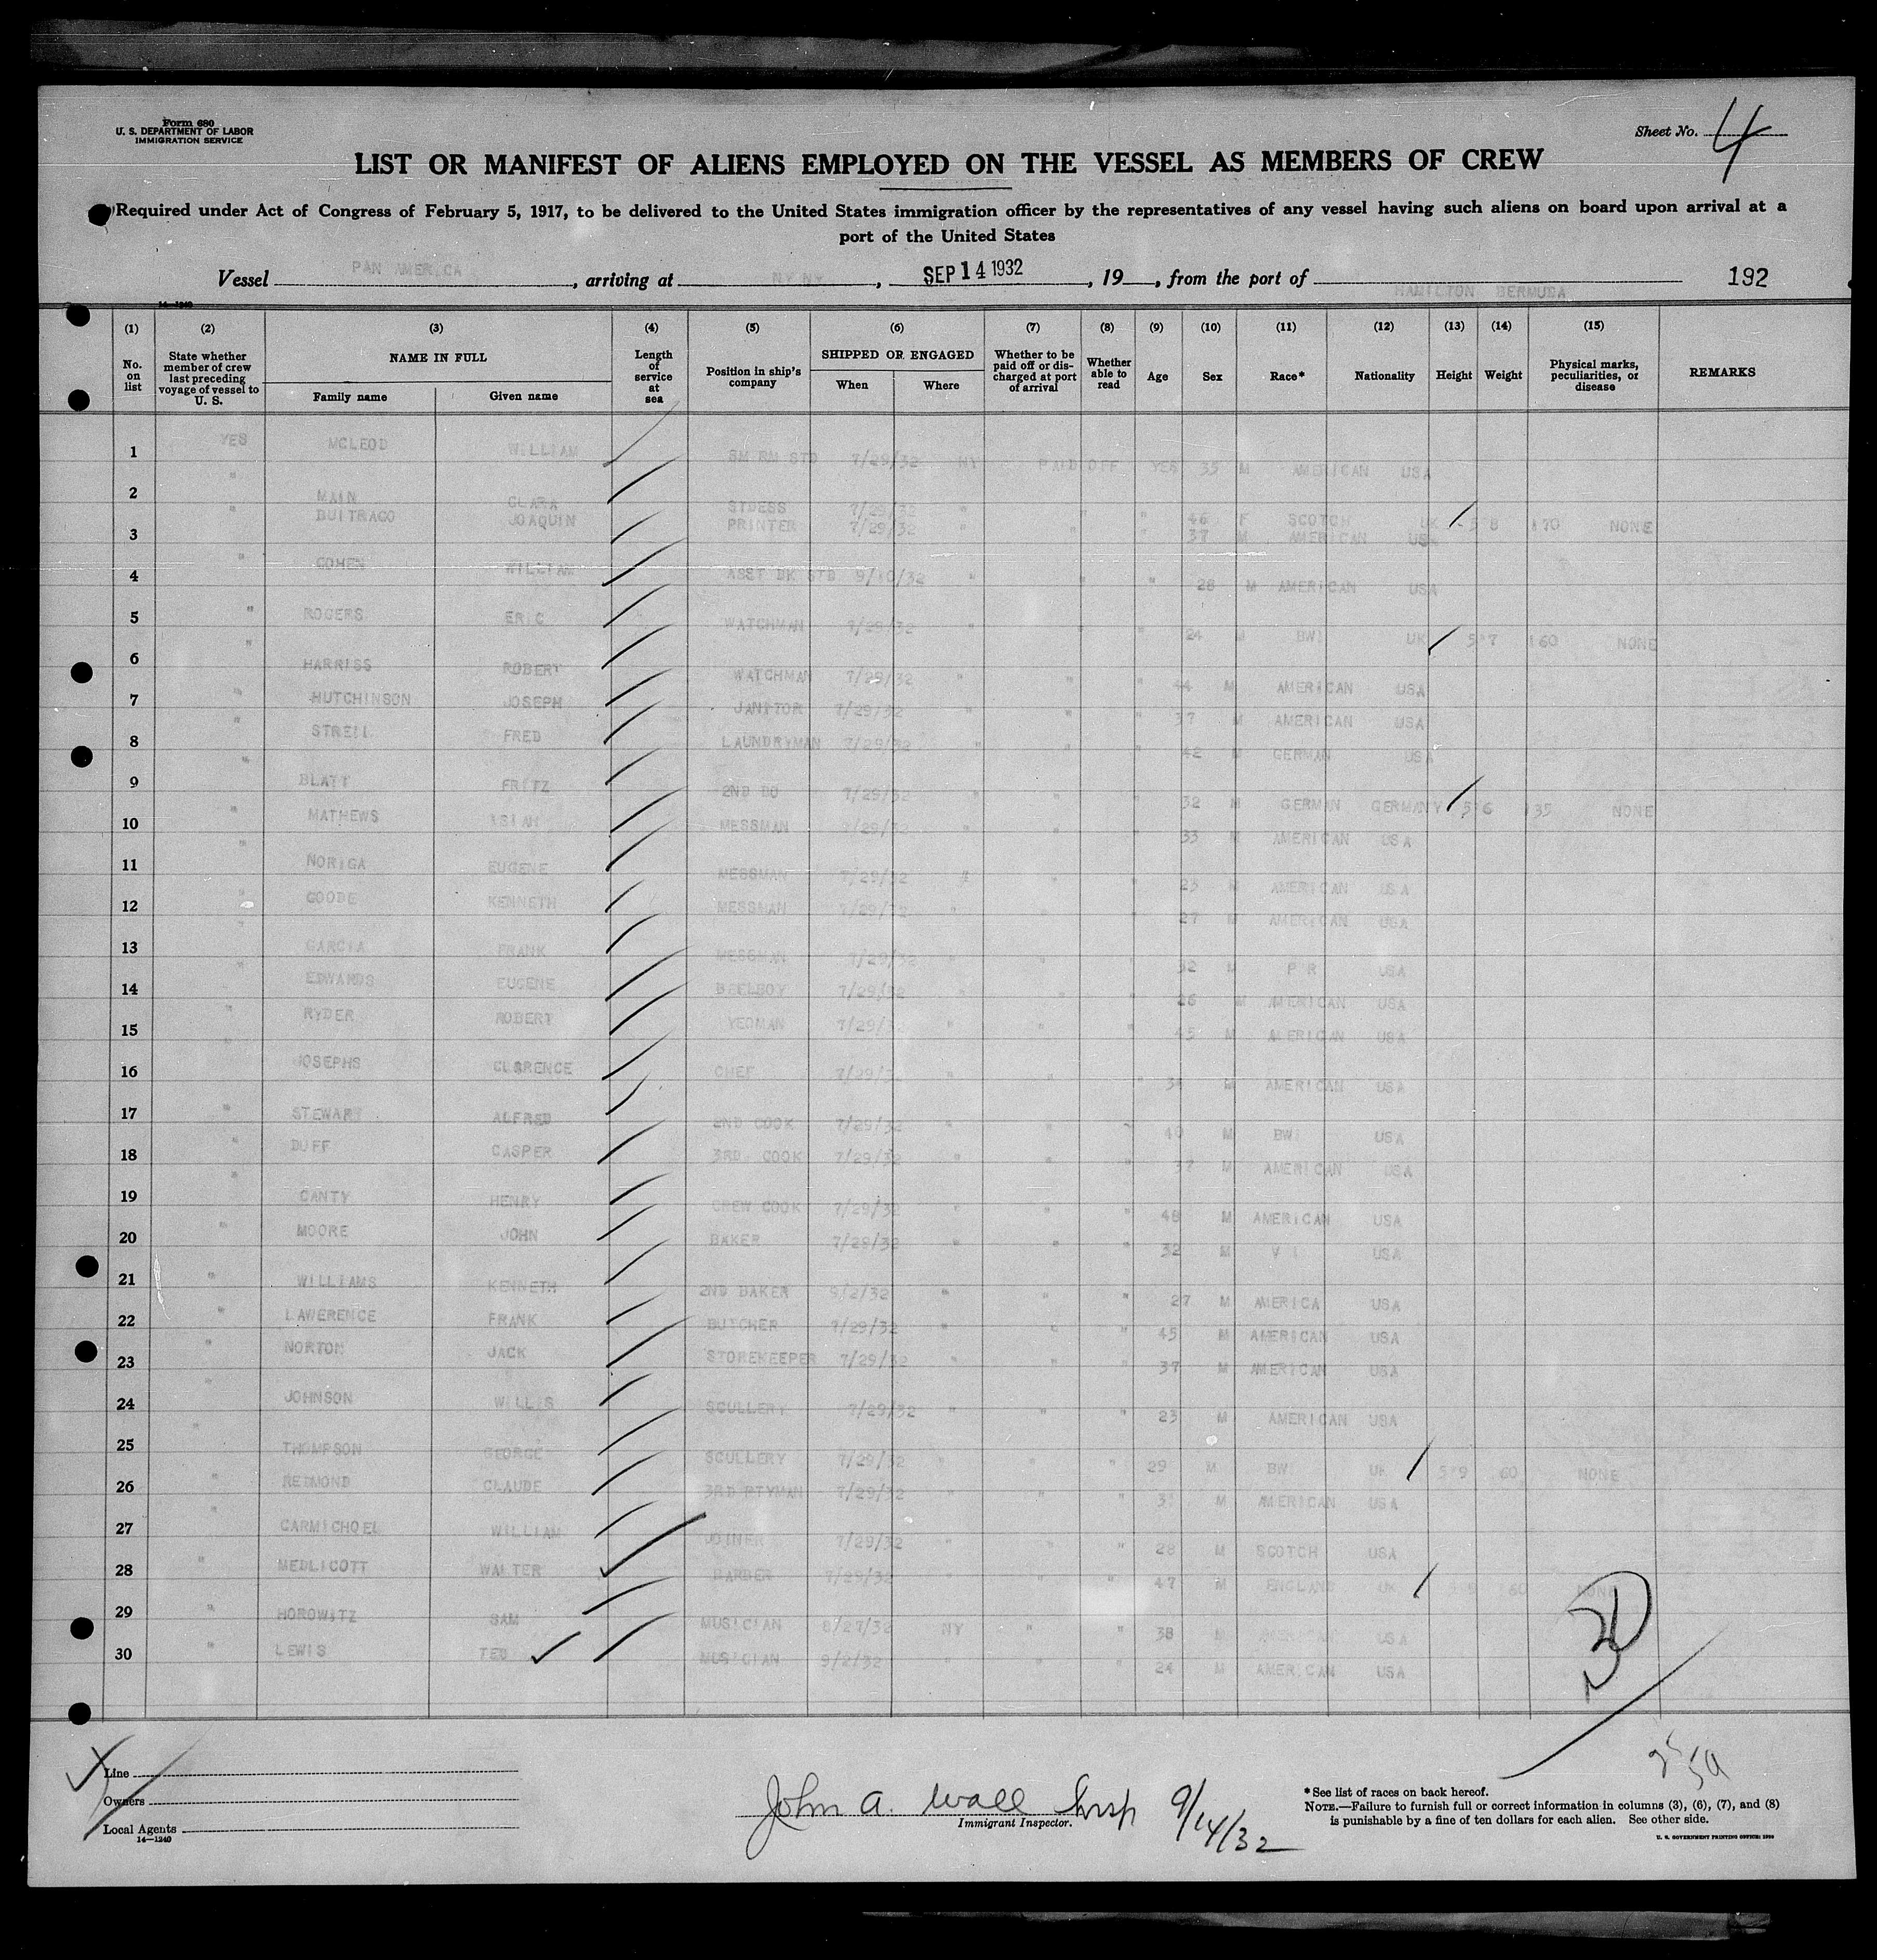 Form 680
U. S. DEPARTMENT OF LABOR
IMMIGRATION SERVICE
Sheet No. 4
LIST OR MANIFEST OF ALIENS EMPLOYED ON THE VESSEL AS MEMBERS OF CREW
Required under Act of Congress of February 5, 1917, to be delivered to the United States immigration officer by the representatives of any vessel having such aliens on board upon arrival at a
port of the United States
Vessel PAN AMERICA, arriving at NY NY, SEP 14 1932, 19, from the port of HAMILTON BERMUDA 192
14—1240
(1) (2) (3) (4) (5) (6) (7) (8) (9) (10) (11) (12) (13) (14) (15)
No. on list
State whether member of crew last preceding voyage of vessel to U. S.
NAME IN FULL
Family name
Given name
Length of service at sea
Position in ship's company
SHIPPED OR ENGAGED
When
Where
Whether to be paid off or discharged at port of arrival
Whether able to read
Age
Sex
Race*
Nationality
Height
Weight
Physical marks, peculiarities, or disease
REMARKS
1 YES MCLEOD WILLIAM SM RM STD 7/29/32 NY PAID OFF YES 35 M AMERICAN USA
2 " MAIN CLARA STDESS 7/29/32 " " " 46 F SCOTCH UK 5'8 170 NONE
3 " BUITRAGO JOAQUIN PRINTER 7/29/32 " " " 37 M AMERICAN USA
4 " WILLIAM ASST DK STD 9/10/32 " " " 28 M AMERICAN USA
5 " ROGERS ERIC WATCHMAN 7/29/32 " " " 24 M BWI UK 5'7 160 NONE
6 " HARRISS ROBERT WATCHMAN 7/29/32 " " " 44 M AMERICAN USA
7 " HUTCHINSON JOSEPH JANITOR 7/29/32 " " " 37 M AMERICAN USA
8 " STRELL FRED LAUNDRYMAN 7/29/32 " " " 42 M GERMAN USA
9 " BLATT FRITZ 2ND DO 7/29/32 " " " 32 M GERMAN GERMANY 5'6 135 NONE
10 " MATHEWS MESSMAN 7/29/32 " 33 M AMERICAN USA
11 " NORIGA EUGENE MESSMAN 7/29/32 " " " 23 M AMERICAN USA
12 " GOODE KENNETH MESSMAN 7/29/32 " " 27 M AMERICAN USA
13 " GARCIA FRANK MESSMAN 7/29/32 " " " 32 M P R USA
14 " EDWARDS EUGENE BEELBOY 7/29/32 " " " 26 M AMERICAN USA
15 " RYDER ROBERT YEOMAN 7/29/32 " " " 45 M AMERICAN USA
16 " JOSEPHS CLARENCE CHEF 7/29/32 " " " M AMERICAN USA
17 " STEWART ALFRED 2ND COOK 7/29/32 " " " 40 M BWI USA
18 " DUFF CASPER 3RD COOK 7/29/32 " " " 37 M AMERICAN USA
19 " CANTY HENRY CREW COOK 7/29/32 " " " 48 M AMERICAN USA
20 " MOORE JOHN BAKER 7/29/32 " " " 32 M V I USA
21 " WILLIAMS KENNETH 2ND BAKER 9/2/32 " " " 27 M AMERICA USA
22 " LAWERENCE FRANK BUTCHER 7/29/32 " " " 45 M AMERICAN USA
23 " NORTON JACK STOREKEEPER 7/29/32 " " " 37 M AMERICAN USA
24 " JOHNSON WILLIS SCULLERY 7/29/32 " " " 23 M AMERICAN USA
25 " THOMPSON GEORGE SCULLERY 7/29/32 " " " 29 M BW UK 5'9 60 NONE
26 " REDMOND CLAUDE 3RD PTYMAN 7/29/32 " " " M AMERICAN USA
27 " CARMICHOEL WILLIAM JOINER 7/29/32 " " " 28 M SCOTCH USA
28 " MEDLICOTT WALTER BARBER 7/29/32 " " " 47 M ENGLAND UK 160 NONE
29 " HOROWITZ SAM MUSICIAN 8/27/32 NY " " 38 M AMERICAN USA
30 " LEWIS TED MUSICIAN 9/2/32 " " " 24 M AMERICAN USA
30
Line
Owners
Local Agents
14—1240
John A. Wall Insp 9/14/32
Immigrant Inspector.
* See list of races on back hereof.
NOTE.—Failure to furnish full or correct information in columns (3), (6), (7), and (8)
is punishable by a fine of ten dollars for each alien. See other side.